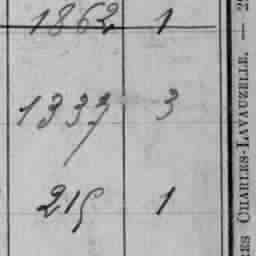 1862 1
1333 3
215 1
RES CHARLES-LAVAUZELLE. — 29